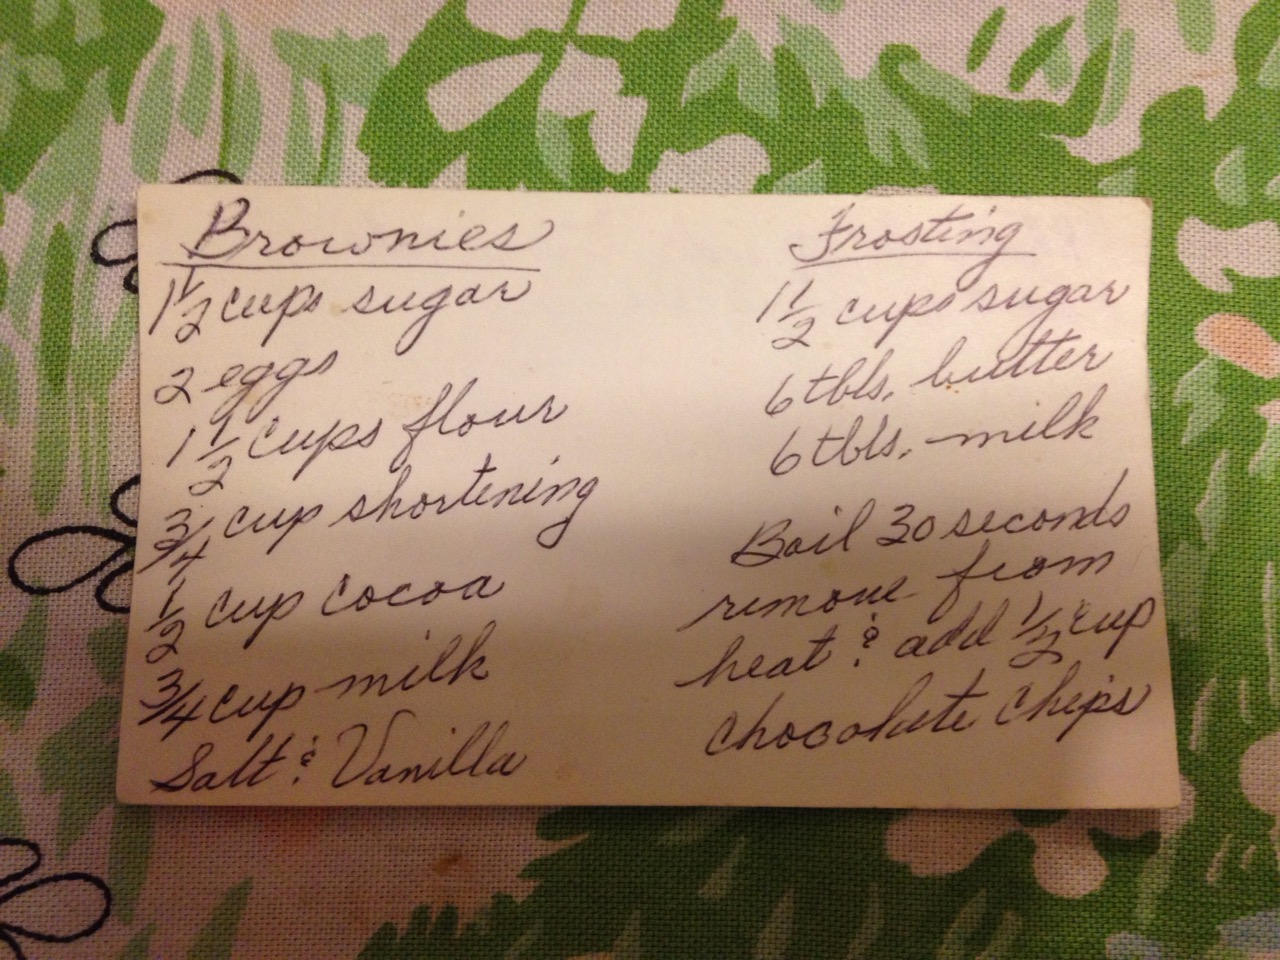 Brownies
1 1/2 cups sugar
2 eggs
1 1/2 cups flour
3/4 cup shortening
1/2 cup cocoa
3/4 cup milk
Salt & Vanilla
Frosting
1 1/2 cups sugar
6 tbls. butter
6 tbls. milk
Boil 30 seconds
remove from
heat & add 1/2 cup
chocolate chips